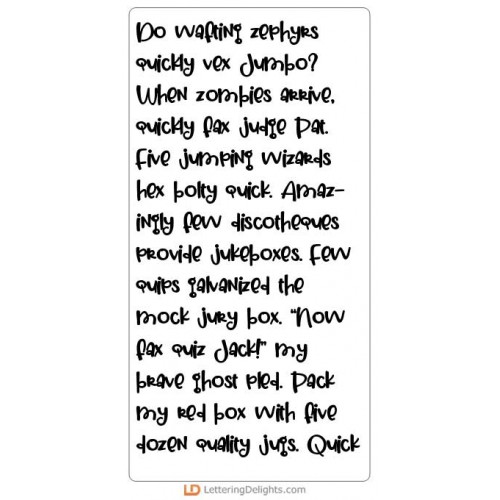 Do wafting zephyrs
quickly vex Jumbo?
When zombies arrive,
quickly fax judge Pat.
Five jumping wizards
hex bolty quick. Amaz-
ingly few discotheques
provide jukeboxes. Few
quips galvanized the
mock jury box. "Now
fax quiz Jack!" my
brave ghost pled. Pack
my red box with five
dozen quality jugs. Quick
LD LetteringDelights.com